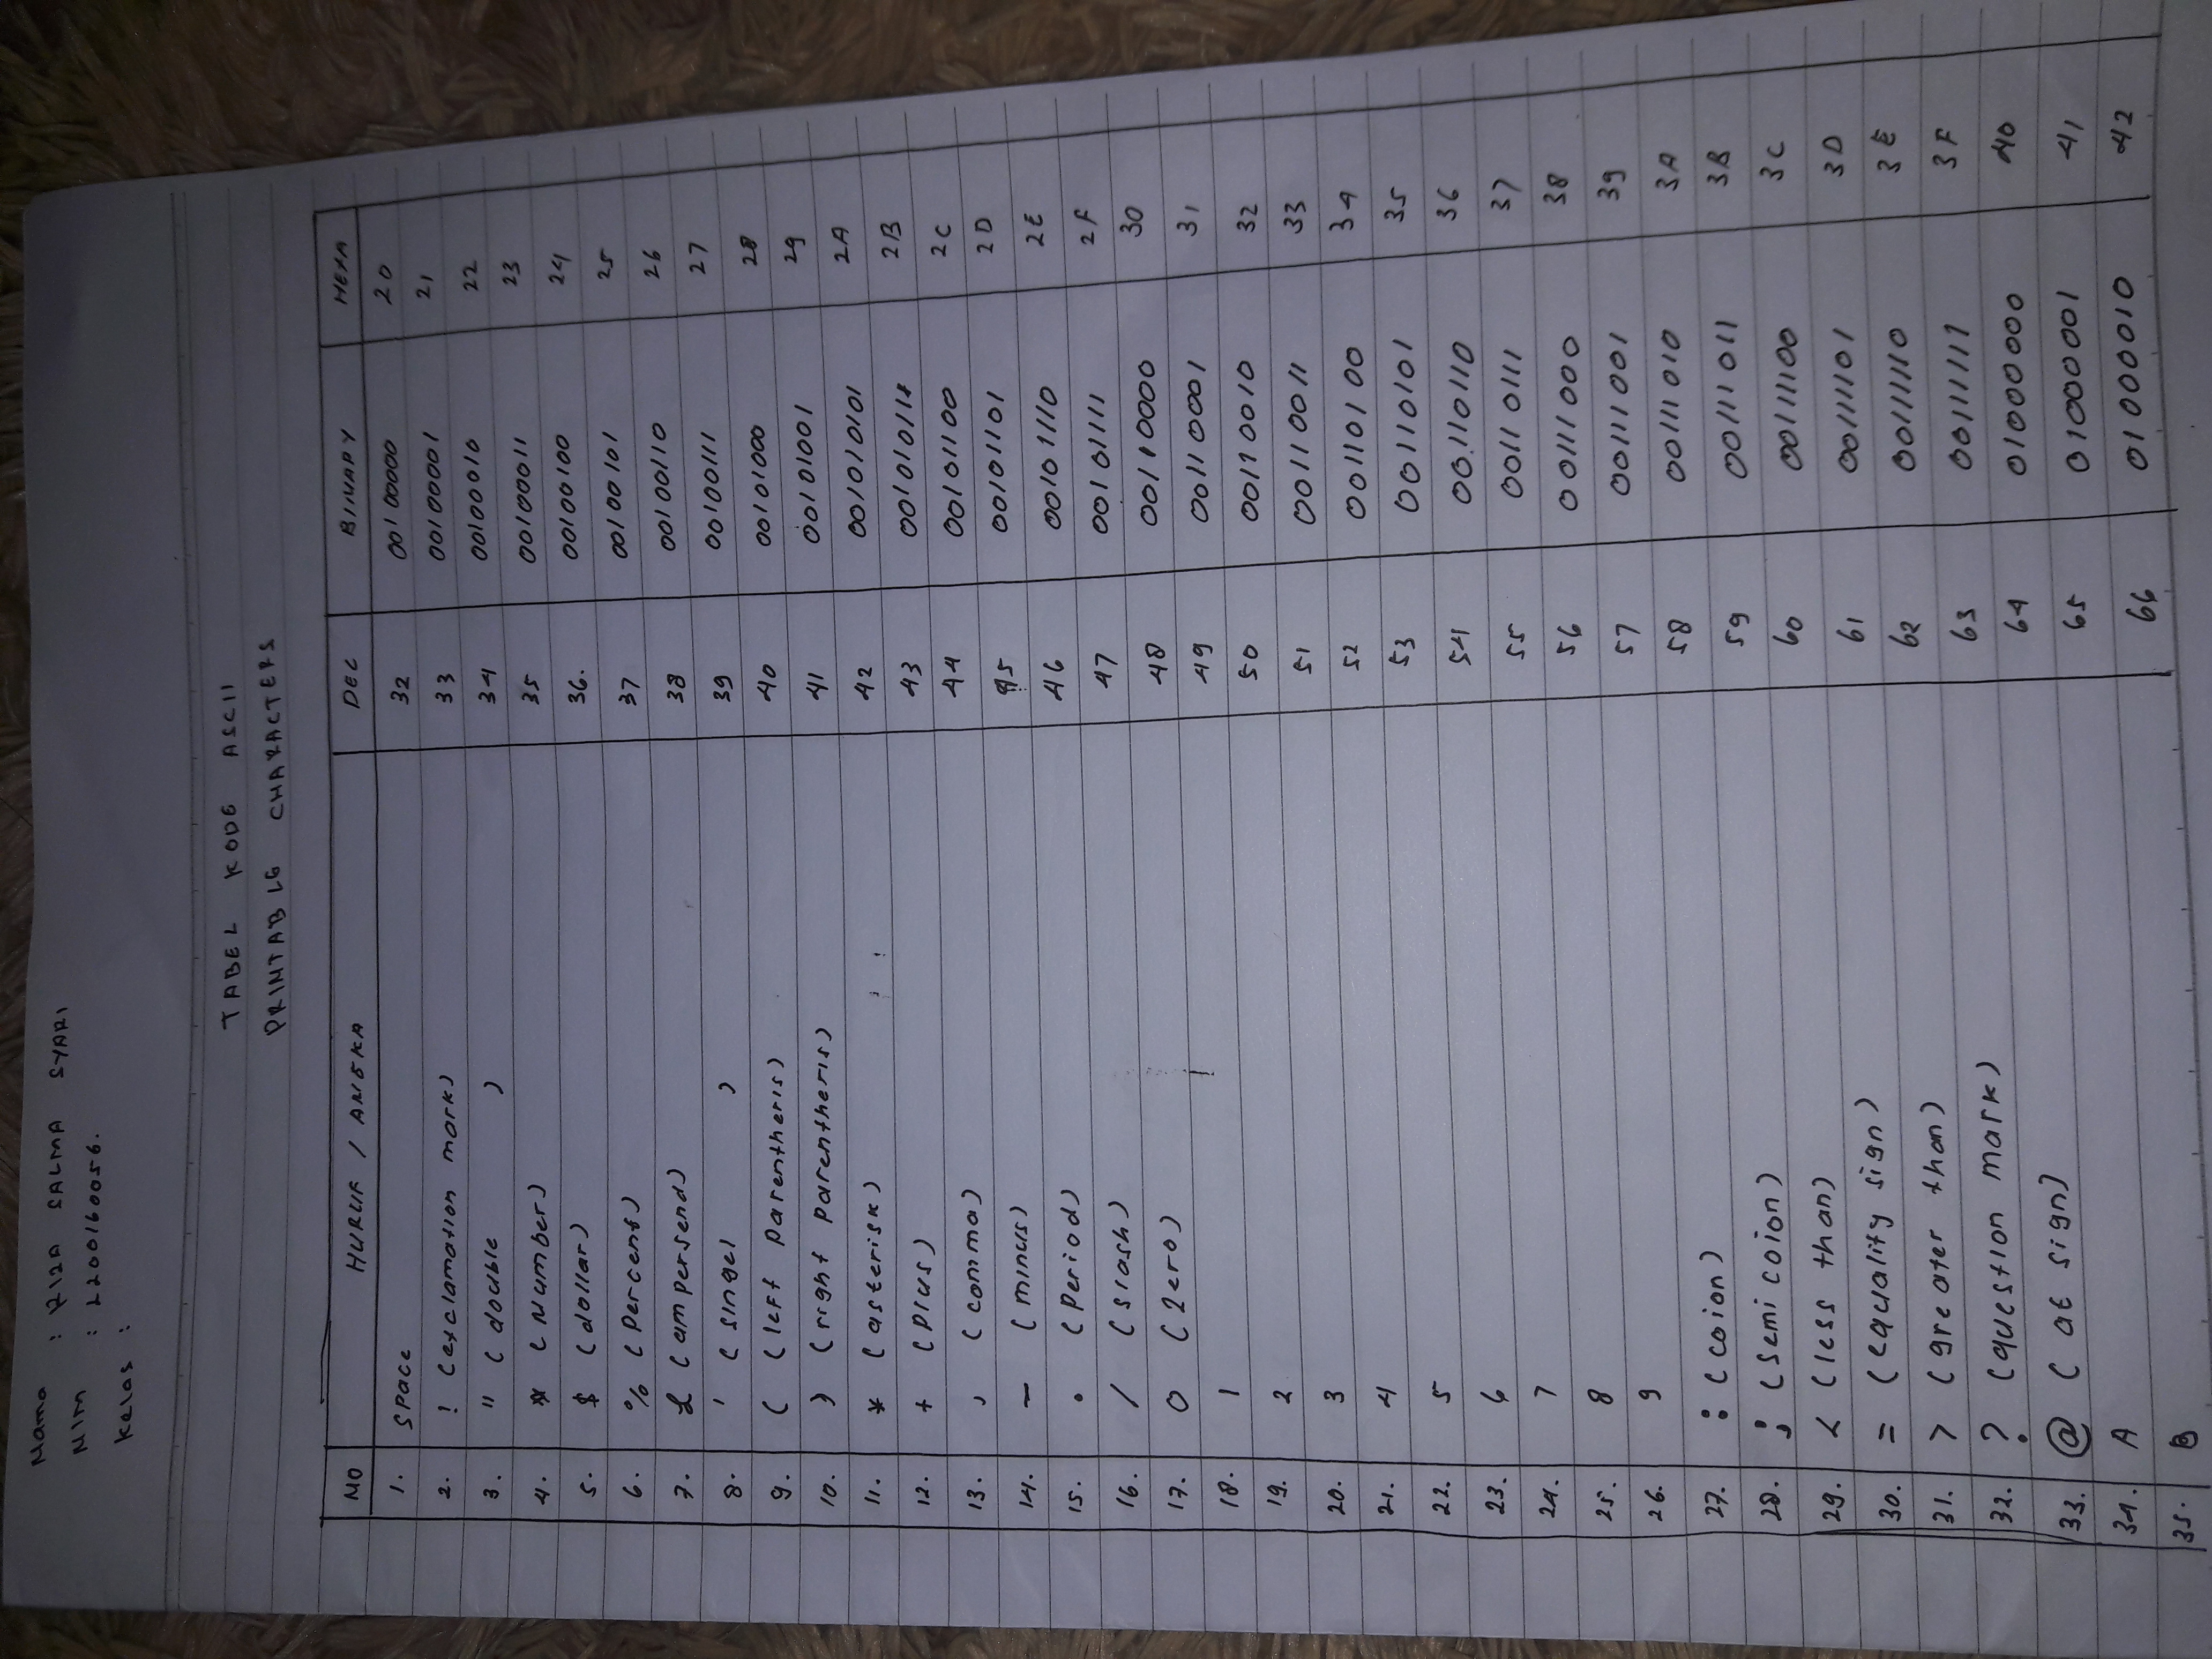 Nama : RIZA SALMA SYARI
NIM : L200160056.
Kelas :
TABEL KODE ASCII
PRINTABLE CHARACTERS
NO HURUF / ANGKA DEC BINARY HEXA
1. Space 32 00100000 20
2. ! (exclamation mark) 33 00100001 21
3. " (double ) 34 00100010 22
4. # (Number) 35 00100011 23
5. $ (dollar) 36. 00100100 24
6. % (Percent) 37 00100101 25
7. & (ampersend) 38 00100110 26
8. ' (singel ) 39 00100111 27
9. ( (left parentheris) 40 00101000 28
10. ) (right parentheris) 41 00101001 29
11. * (asterisk) 42 001010101 2A
12. + (plus) 43 001010111 2B
13. , (comma) 44 00101100 2C
14. - (minus) 45 00101101 2D
15. . (Period) 46 00101110 2E
16. / (slash) 47 00101111 2F
17. 0 (zero) 48 00110000 30
18. 1 49 00110001 31
19. 2 50 00110010 32
20. 3 51 00110011 33
21. 4 52 00110100 34
22. 5 53 00110101 35
23. 6 54 00110110 36
24. 7 55 00110111 37
25. 8 56 00111000 38
26. 9 57 00111001 39
27. : (coion) 58 00111010 3A
28. ; (semi coion) 59 00111011 3B
29. < (less than) 60 00111100 3C
30. = (equality sign) 61 00111101 3D
31. > (greater than) 62 00111110 3E
32. ? (question mark) 63 00111111 3F
33. @ (at sign) 64 01000000 40
34. A 65 01000001 41
35. B 66 01000010 42